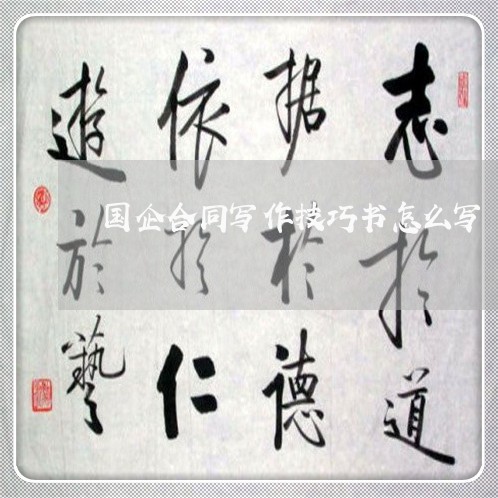 志於道
据於德
依於仁
遊於藝
国企合同写作技巧书怎么写